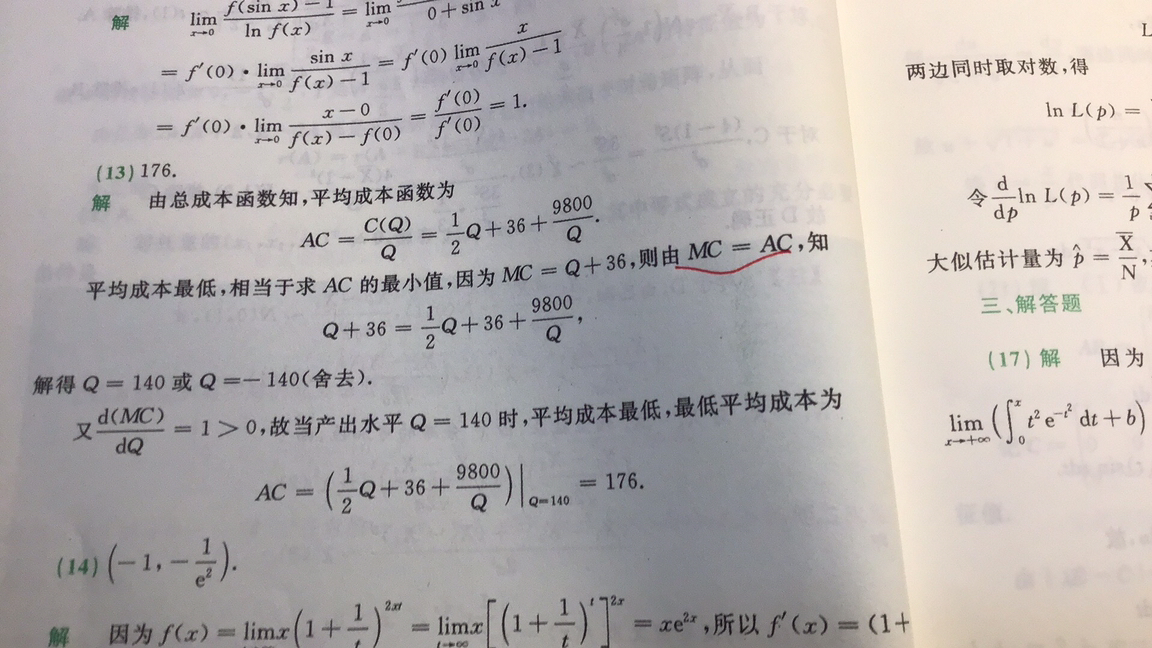 解 lim x→0 f(sin x)−1 / ln f(x) = lim x→0 / 0+sin x
= f′(0)·lim x→0 sin x / f(x)−1 = f′(0) lim x→0 x / f(x)−1
= f′(0)·lim x→0 x−0 / f(x)−f(0) = f′(0) / f′(0) = 1.
(13) 176.
解 由总成本函数知,平均成本函数为
AC = C(Q)/Q = 1/2 Q+36+ 9800/Q.
平均成本最低,相当于求 AC 的最小值,因为 MC = Q+36,则由 MC = AC,知
Q+36 = 1/2 Q+36+ 9800/Q,
解得 Q = 140 或 Q =−140(舍去).
又 d(MC)/dQ = 1 > 0,故当产出水平 Q = 140 时,平均成本最低,最低平均成本为
AC = (1/2 Q+36+ 9800/Q)| Q=140 = 176.
(14) (−1,−1/e²).
解 因为 f(x) = lim x(1+1/t)^2xt = lim t→∞ x[(1+1/t)^t]^2x = xe^2x,所以 f′(x) = (1+
L
两边同时取对数,得
ln L(p) =
令 d/dp ln L(p) = 1/p
大似估计量为 p̂ = X̄/N,
三、解答题
(17) 解 因为
lim x→+∞ (∫₀ˣ t²e^−t² dt+b)